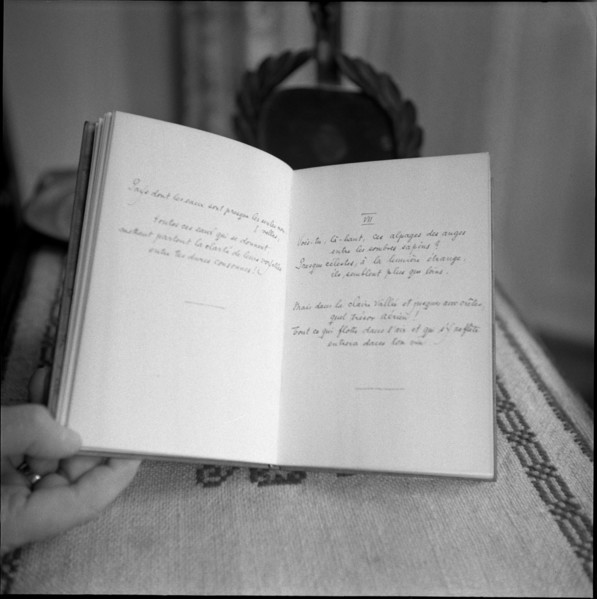 Pays dont les eaux sont presque les
toutes ces eaux qui se donnent,
mettant partout la clarté de leurs voyelles
entre tes dures consonnes!
VII
Vois-tu, là-haut, ces alpages des anges
entre les sombres sapins?
Presque célestes, à la lumière étrange,
ils semblent plus que loin.
Mais dans la claire vallée et jusques aux crêtes,
quel trésor aérien!
Tout ce qui flotte dans l'air et qui s'y reflète
entrera dans ton vin.